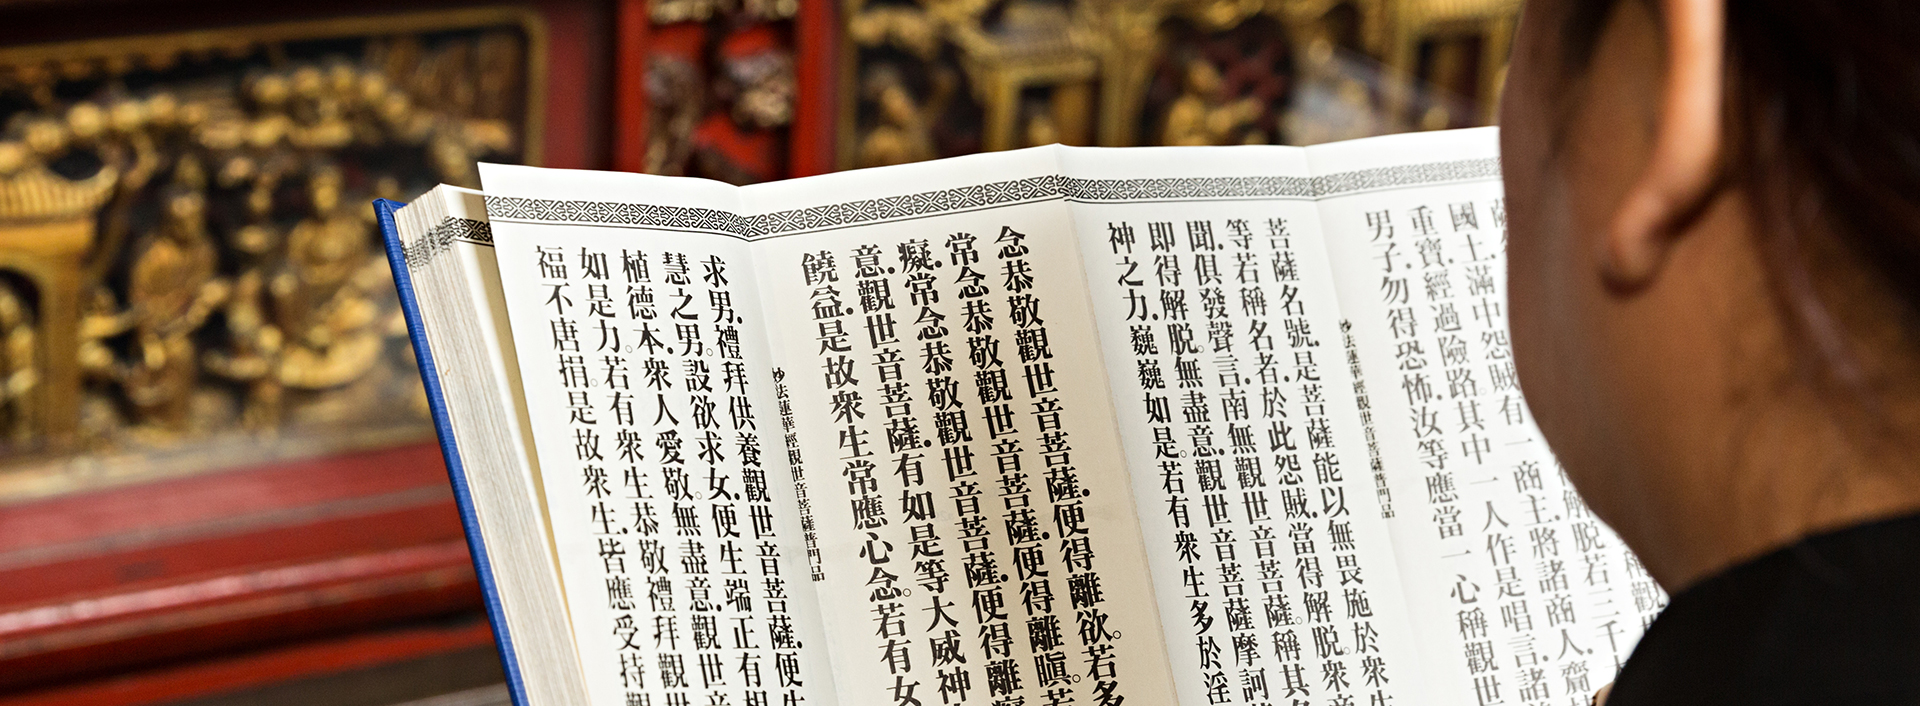 稱觀
得解脫若三千大
國土.滿中怨賊有一商主.將諸商人.齎
重寶.經過險路.其中一人作是唱言.諸
男子.勿得恐怖.汝等應當一心稱觀世
妙法蓮華經觀世音菩薩普門品
菩薩名號.是菩薩能以無畏施於衆生
等.若稱名者.於此怨賊.當得解脫。衆
聞.俱發聲言.南無觀世音菩薩。稱其名
即得解脫。無盡意.觀世音菩薩摩訶
神之力.巍巍如是。若有衆生多於淫
念恭敬觀世音菩薩.便得離欲。若多
常念恭敬觀世音菩薩.便得離瞋。若
癡.常念恭敬觀世音菩薩.便得離癡
意.觀世音菩薩.有如是等大威神
饒益.是故衆生常應心念。若有女
妙法蓮華經觀世音菩薩普門品
求男.禮拜供養觀世音菩薩.便生
慧之男。設欲求女.便生端正有相
植德本.衆人愛敬。無盡意.觀世音
如是力。若有衆生恭敬禮拜觀世
福不唐捐。是故衆生.皆應受持觀